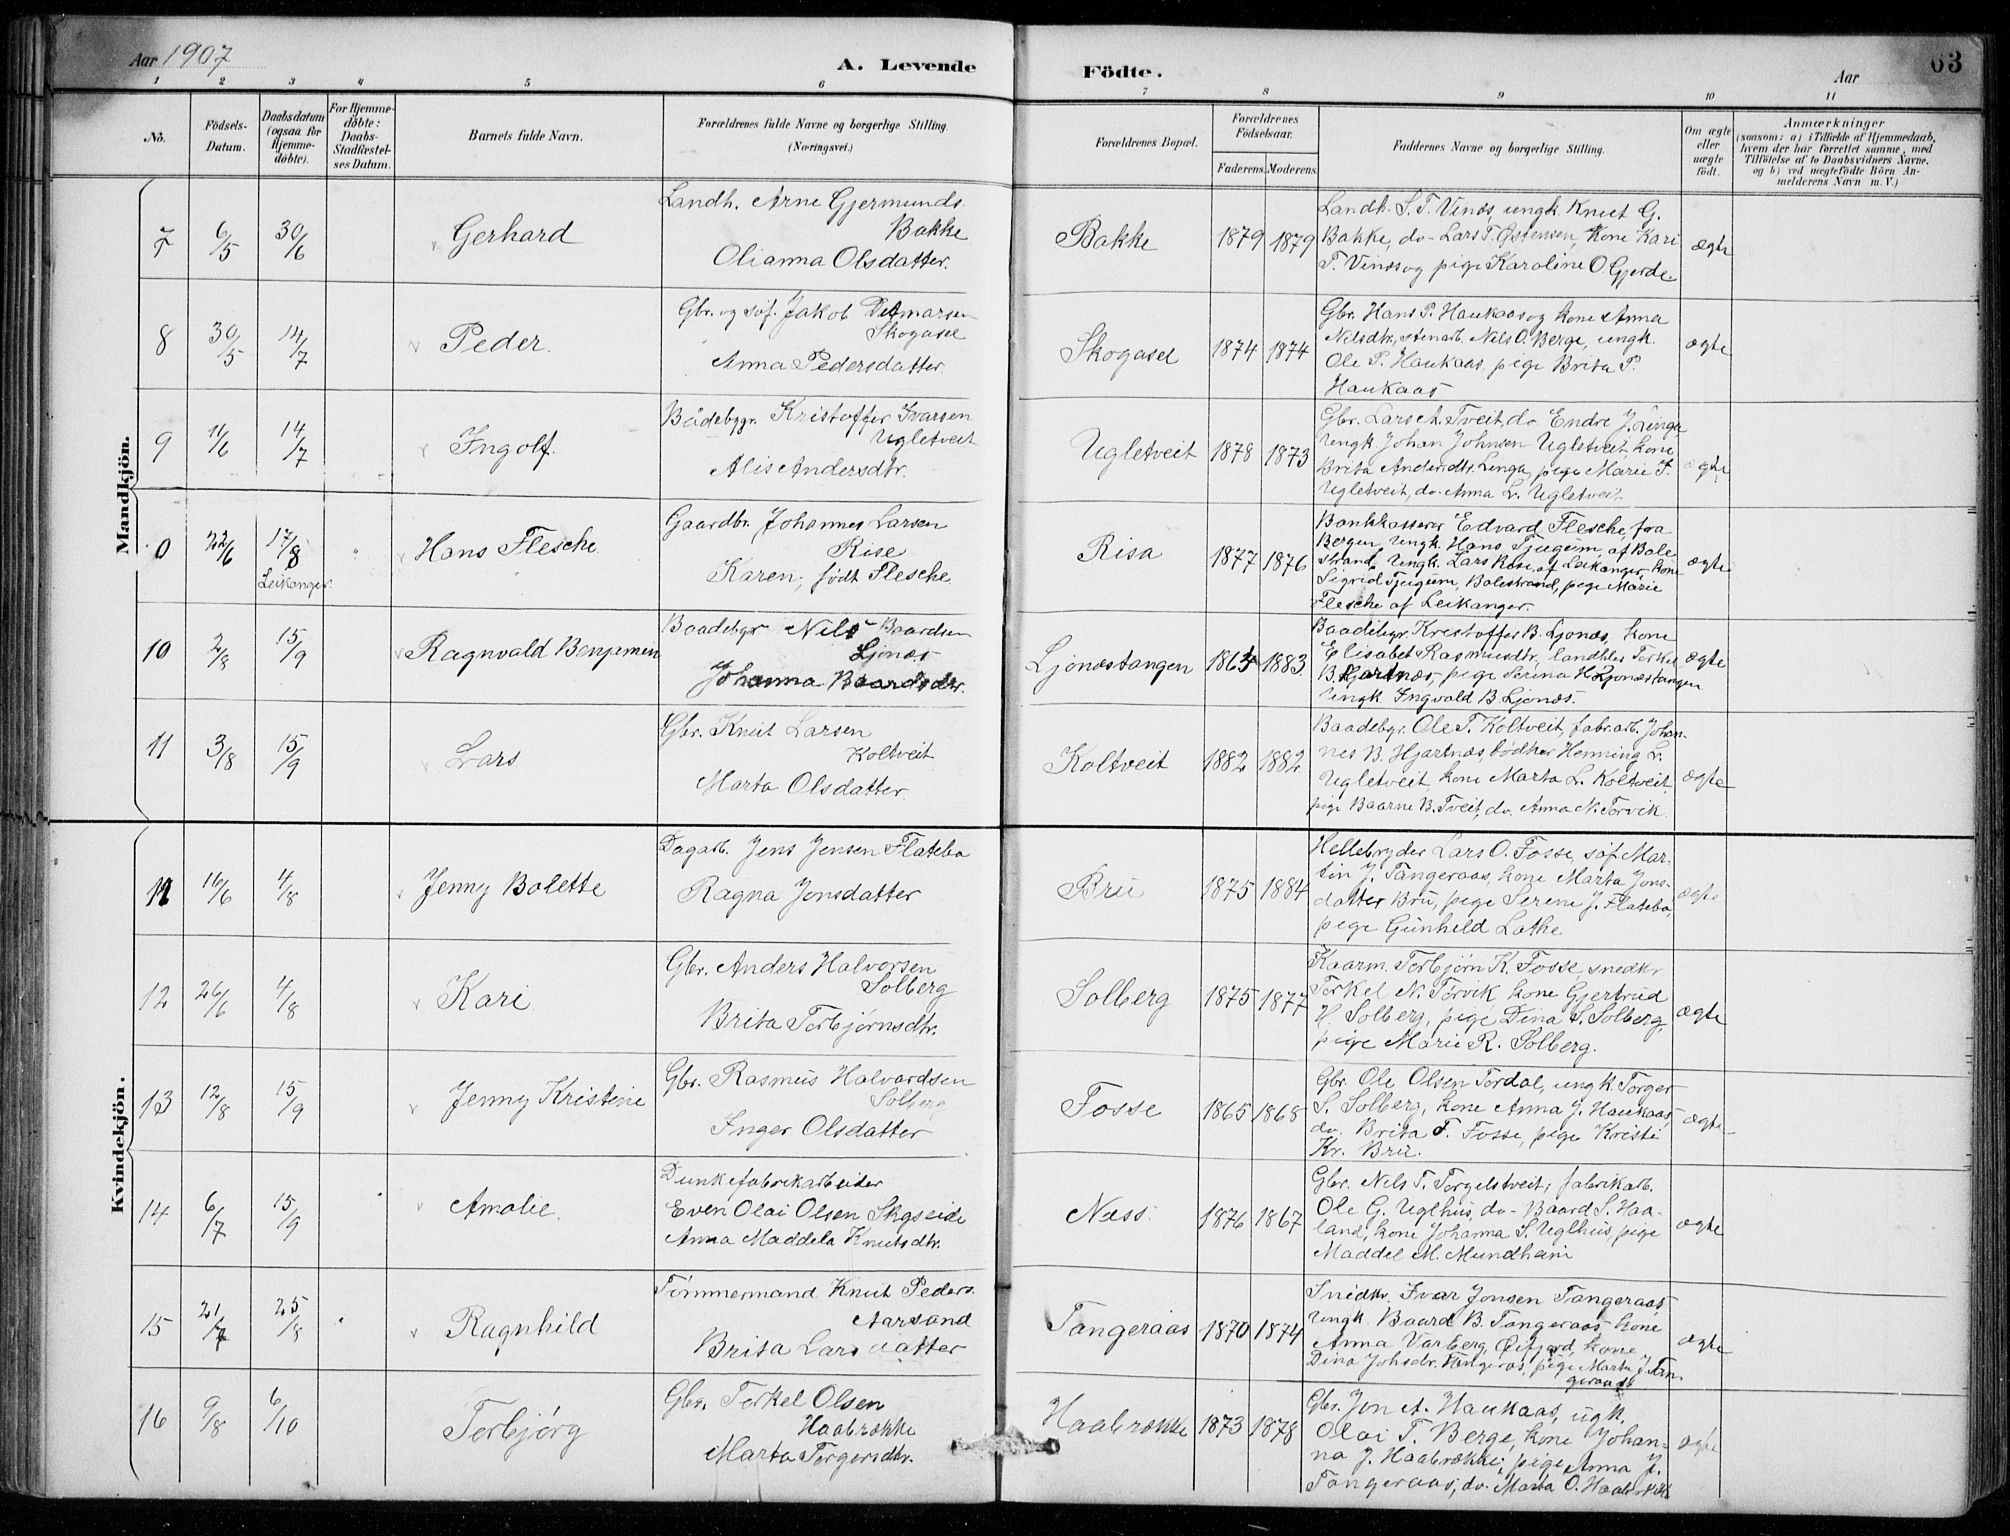 Aar 1907
A. Levende Födte.
Aar
63
1 2 3 4 5 6 7 8 9 10 11
No.
Födsels-
Datum.
Daabsdatum
(ogsaa for
Hjemme-
döbte).
For Hjemme-
döbte:
Daabs-
Stadfæstel-
ses Datum.
Barnets fulde Navn.
Forældrenes fulde Navne og borgerlige Stilling.
(Næringsvei.)
Forældrenes Bopæl.
Forældrenes
Födselsaar.
Faderens. Moderens.
Faddernes Navne og borgerlige Stilling.
Om ægte
eller
uægte
födt.
Anmærkninger
(saasom: a) i Tilfælde af Hjemmedaab,
hvem der har forrettet samme, med
Tilföielse af to Daabsvidners Navne.
og b) ved uægtefödte Börn An-
melderens Navn m. V.)
Mandkjön.
7 6/5 30/6 Gerhard
Landh. Arne Gjermunds.
Bakke
Olianna Olsdatter.
Bakke 1879 1879
Landh. S. T. Vinæs, ungk. Knut G.
Bakke, do- Lars T. Østensen, kone Kari
T. Vinæs og pige Karoline O Gjerde.
ægte
8 30/5 14/7 Peder.
Gbr. og söf. Jakob Detmarsen
Skogasel
Anna Pedersdatter.
Skogasel 1874 1874
Gbr. Hans P. Haukaas og kone Anna
Nilsdtr., stenarb. Nils O. Berge, ungk.
Ole P. Haukaas, pige Brita P.
Haukaas
ægte
9 11/6 14/7 Ingolf.
Bådebygr. Kristoffer Ivarsen
Ugletveit
Alis Andersdtr.
Ugletveit 1878 1873
Gbr. Lars A. Tveit, do Endre J. Linga
Ungk. Johan Johnsen Ugletveit, kone
Brita Andersdtr. Linga, pige Marie I.
Ugletveit, do- Anna L. Ugletveit
ægte
0 22/6 17/8 Leikanger. " Hans Flesche
Gaardbr. Johannes Larsen
Rise
Karen, født Flesche
Risa 1877 1876
Bankkasserer Edvard Flesche, fra
Bergen, Ungk. Hans Tjugum, af Bale
strand, Ungk. Lars Risa, af Leikanger, kone
Sigrid Tjugum, Balestrand, pige Marie
Flesche af Leikanger.
ægte
10 2/8 15/9 Ragnvald Benjamin
Baadebgr Nils Baardsen
Ljonæs
Johanna Baardsdtr.
Ljonæstangen 1863 1883
Baadebgr. Kristoffer B. Ljonæs, kone
Elisabet Rasmusdtr, landhdes Torkel
B. Hjartnæs, pige Serina H Ljonæstangen
Ungk. Ingvald B Ljonæs.
ægte
11 3/8 15/9 Lars
Gbr. Knut Larsen
Koltveit
Marta Olsdatter.
Koltveit 1882 1882
Baadebgr. Ole T. Koltveit, fabr.arb. Johan-
nes B. Hjartnæs, bødker Henning L.
Ugletveit kone Marta L. Koltveit.
pige Baarne B. Tveit, do. Anna N. Torvik.
ægte
Kvindekjön.
11 16/6 4/8 Jenny Bolette
Dagarb. Jens Jensen Flatebø
Ragna Jonsdatter
Bru 1875 1884
Hellebryder Lars O. Fosse, söf Mar-
tin J. Tangeraas, kone Marta Jons-
datter Bru, pige Serene J. Flatebø,
pige Gunhild Lathe
ægte
12 26/6 4/8 Kari
Gbr. Anders Halvorsen
Solberg
Brita Torbjørnsdtr.
Solberg 1875 1877
Kaarm. Torbjørn K. Fosse, snedkr
Torkel N. Tørvik kone Gjertrud
H. Solberg, pige Dina S. Solberg,
pige Marie R. Solberg.
ægte
13 12/8 15/9 Jenny Kristine
Gbr. Rasmus Halvardsen
Solberg
Inger Olsdatter
Fosse 1865 1868
Gbr. Ole Olsen Tordal, ungk. Torger
S. Solberg, kone Anna J. Haukaas,
do. Brita T. Fosse, pige Kristi
Kr. Bru.
ægte
14 6/7 15/9 Amalie.
Dunkefabrikarbeider
Even Olai Olsen Skogseide
Anna Maddela Knutsdtr.
Næss. 1876 1867
Gbr. Nils T. Torgelstveit, fabrikarb.
Ole G. Uglhus, do- Baard S. Haa-
land, kone Johanna S. Uglhus, pige
Maddel M. Mundheim
ægte
15 21/7 25/8 Ragnhild
Tømmermand Knut Peders.
Aarsand
Brita Larsdatter
Tangeraas 1870 1874
Snedkr. Ivar Jonsen Tangeraas,
Ungk. Baard B. Tangeraas kone
Anna Varberg, Øifjord, kone
Dina Johsdtr. Tangeras, pige Marta J. Tan-
geraas
ægte
16 9/8 6/10 Torbjørg
Gbr. Torkel Olsen
Haabrække
Marta Torgersdtr.
Haabrække 1873 1878
Gbr. Jon A. Haukaas, ugk.
Olai T. Berge, kone Johan-
na J. Haabrække, pige Anna J.
Tangeraas, do. Marta O. Haabrække
ægte